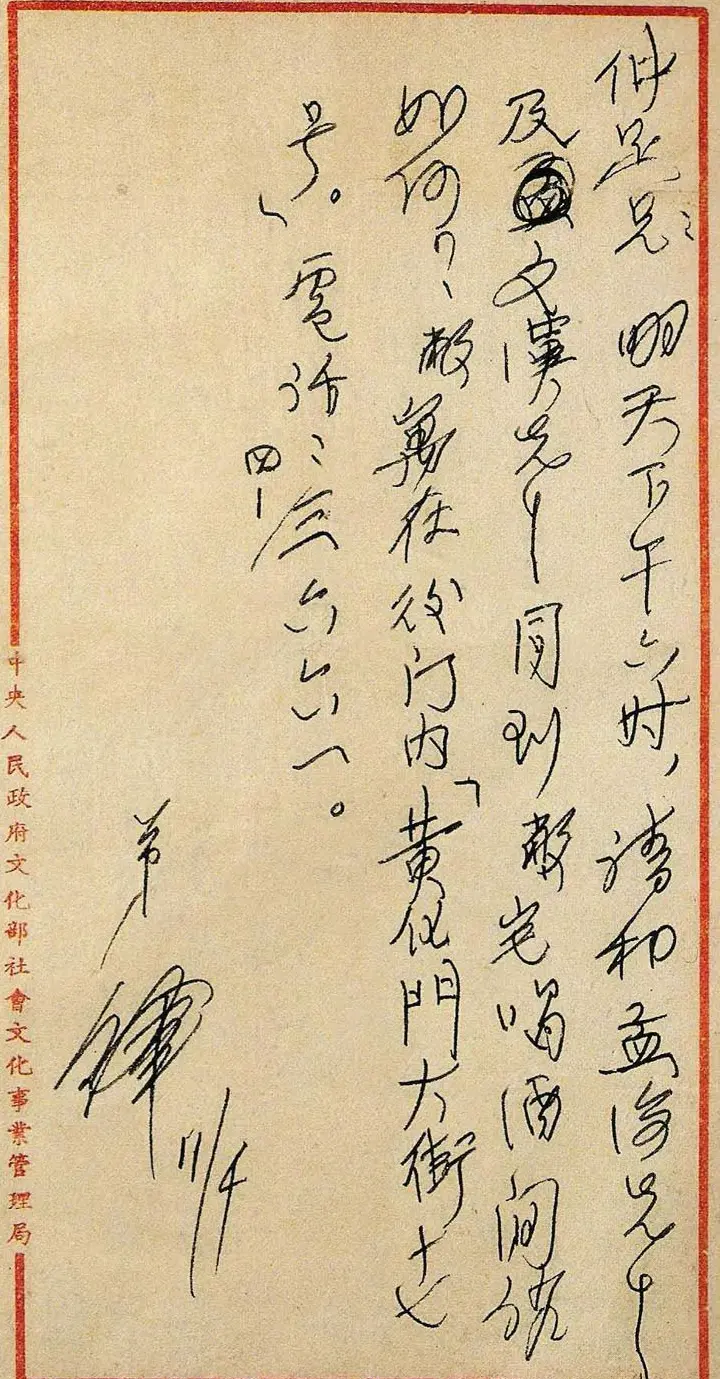 仲足兄：明天下午六时，请和孟海兄
及文漢兄同到敝宅喝酒闲谈
如何？敝寓在後门内「黄化門大街十七
号」。電话：四三六六一。
弟 鐸 11/4
中央人民政府文化部社會文化事業管理局